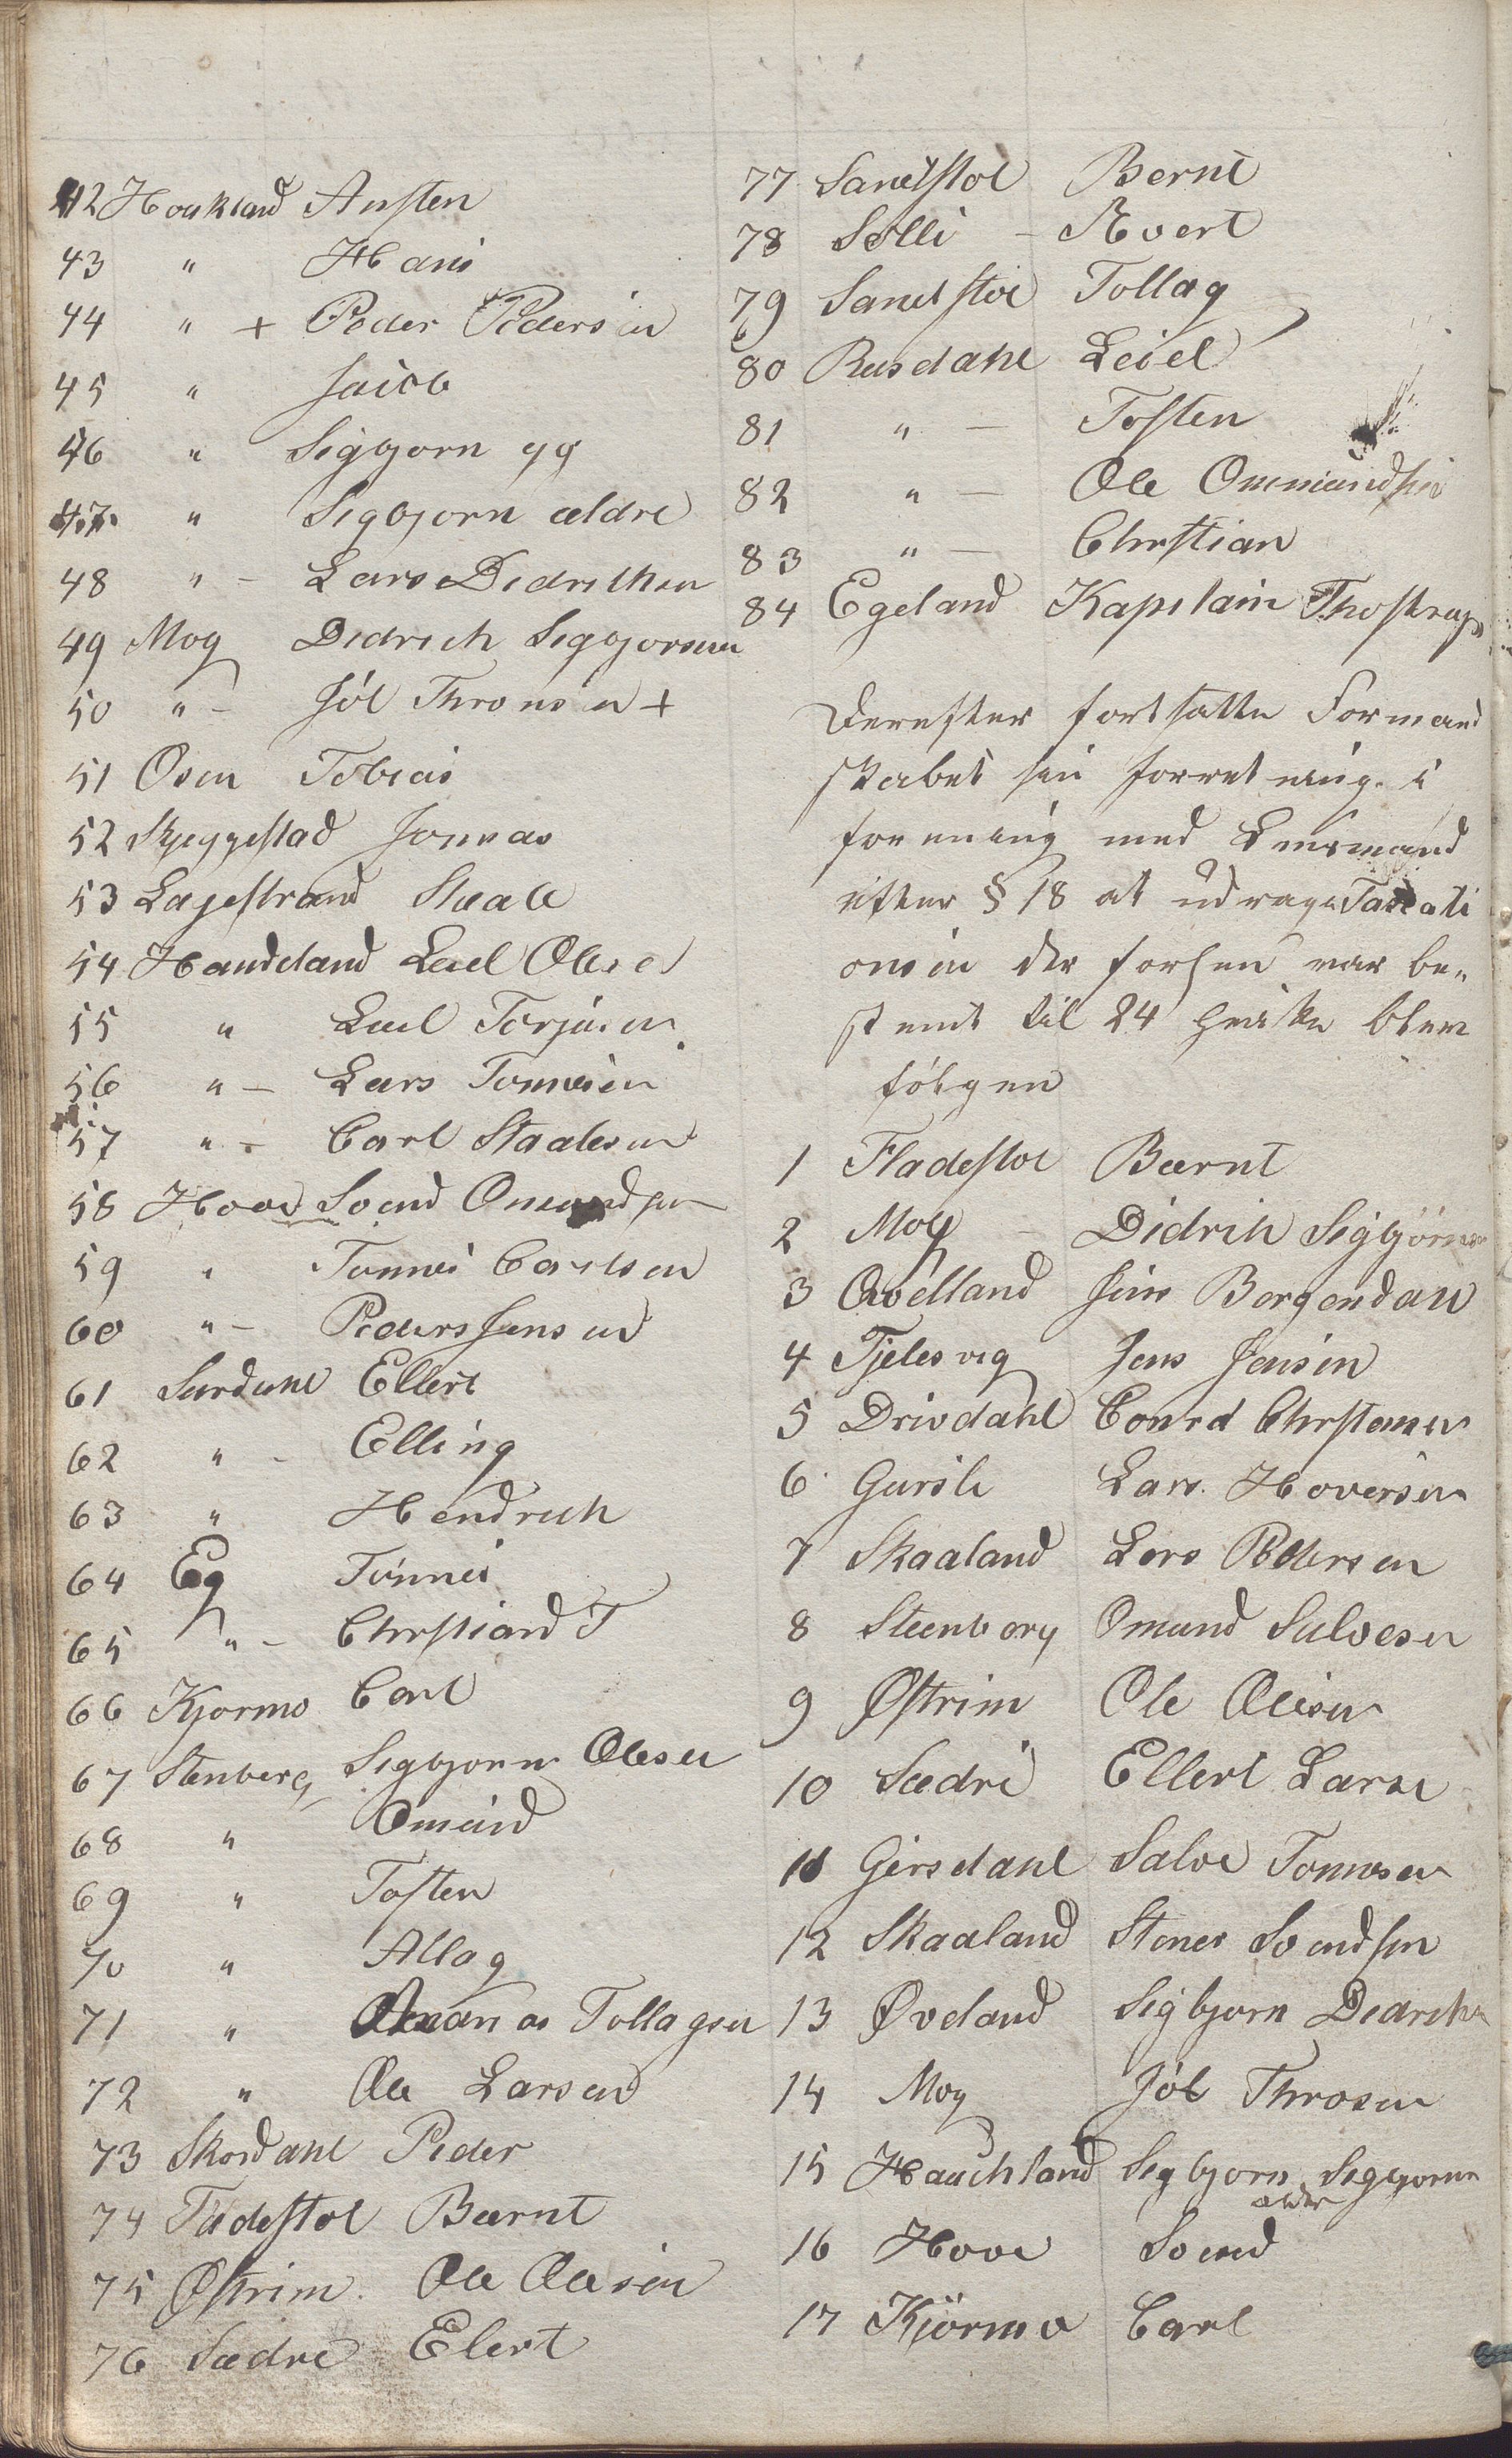 42 Houkland Austen
43 " Hans
44 " + Peder Pedersen
45 " Jacob
46 " Sigbjorn yg
47 " Sigbjorn ældre
48 " - Lars Didrichsen
49 Moy Didrich Sigbjornsen
50 " - Jól Thronsen +
51 Osen Tobias
52 Skjeggestad Jonnas
53 Lagestrand Staale
54 Handeland Lael Olsen
55 " Lael Torjusen
56 " - Lars Tonnesen
57 " - Carl Staalesen
58 Hove Svend Omundsen
59 " Tonnes Carlsen
60 " - Peders Jensen
61 Surdahl Ellert
62 " - Elling
63 " Hendrich
64 Eg Tónnes
65 " - Chrstian T
66 Kjormo Carl
67 Stenberg Sigbjorn Olesen
68 " Omund
69 " Tosten
70 " Atlag
71 " Ananas Tollagsen
72 " Ole Larsen
73 Skordahl Peder
74 Fladestol Bærnt
75 Østrim. Ole Olesen
76 Sædre Elert
77 Sandstol Bernt
78 Solli - Evert
79 Sandstol Tollag
80 Rusdahl Leiel
81 " - Tosten
82 " - Ole Ommundsen
83 " - Chrstian
84 Egeland Kapitain Thostrup
Derefter fortsatte Formand
skabet sin forretning i
forening med Lensmand
efter § 18 at udvage Taxati
onsmen der forhen var be„
stemt til 24 hvilke bleve
følgen
1 Fladestol Bærnt
2 Moy - Didrich Sigbjørnsen
3 Qvelland Jens Bergendahl
4 Tjelesvig Jens Jensen
5 Drivdahl Conrd Chrstensen
6 Gursli Lars Hoversen
7 Skaaland Lars Pedersen
8 Steenberg Omund Salvesen
9 Østrim Ole Olesen
10 Sædre Ellert Larse
11 Girsdahl Salve Tonnesen
12 Skaaland Stener Svendsen
13 Øveland Sigbjorn Didrichs
14 Moy Jól Throsen
15 Hauchland Sigbjorn Sigbjorns
ældre
16 Hove Svend
17 Kjörmo Carl